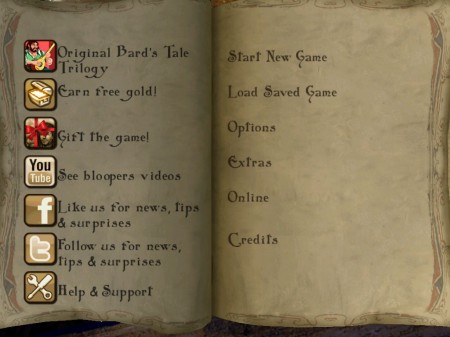 Original Bard's Tale
Trilogy
Earn free gold!
Gift the game!
You
Tube
See bloopers videos
f
Like us for news, tips
& surprises
t
Follow us for news,
tips & surprises
Help & Support
Start New Game
Load Saved Game
Options
Extras
Online
Credits